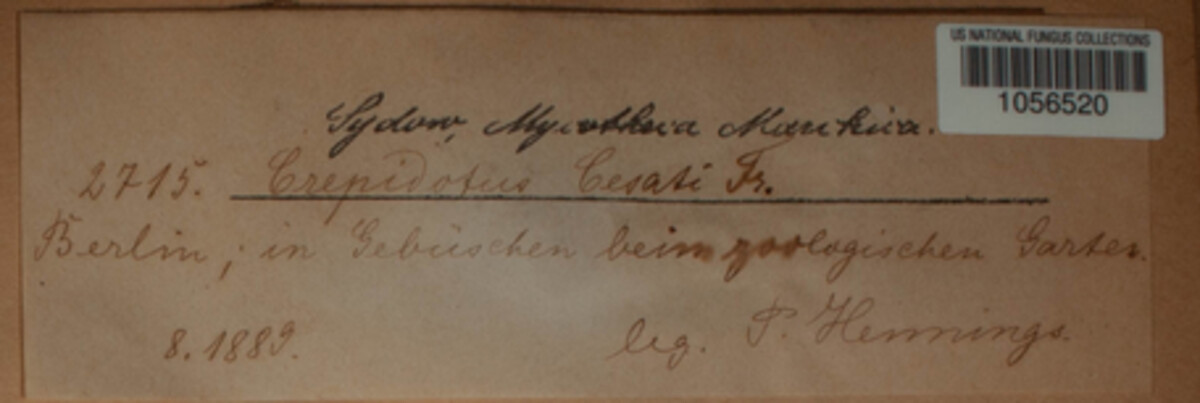 US NATIONAL FUNGUS COLLECTIONS
1056520
Sydow, Mycotheca Marchica.
2715. Crepidotus Cesati Fr.
Berlin; in Gebüschen beim zoologischen Garten.
8. 1889.
leg. P. Hennings.